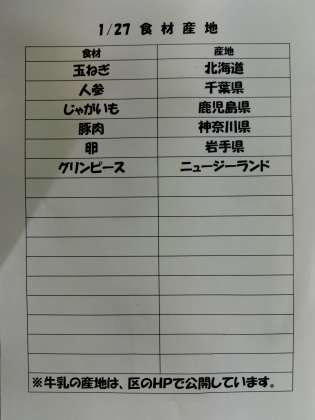 1/27 食材産地
食材 産地
玉ねぎ 北海道
人参 千葉県
じゃがいも 鹿児島県
豚肉 神奈川県
卵 岩手県
グリンピース ニュージーランド
※牛乳の産地は、区のHPで公開しています。